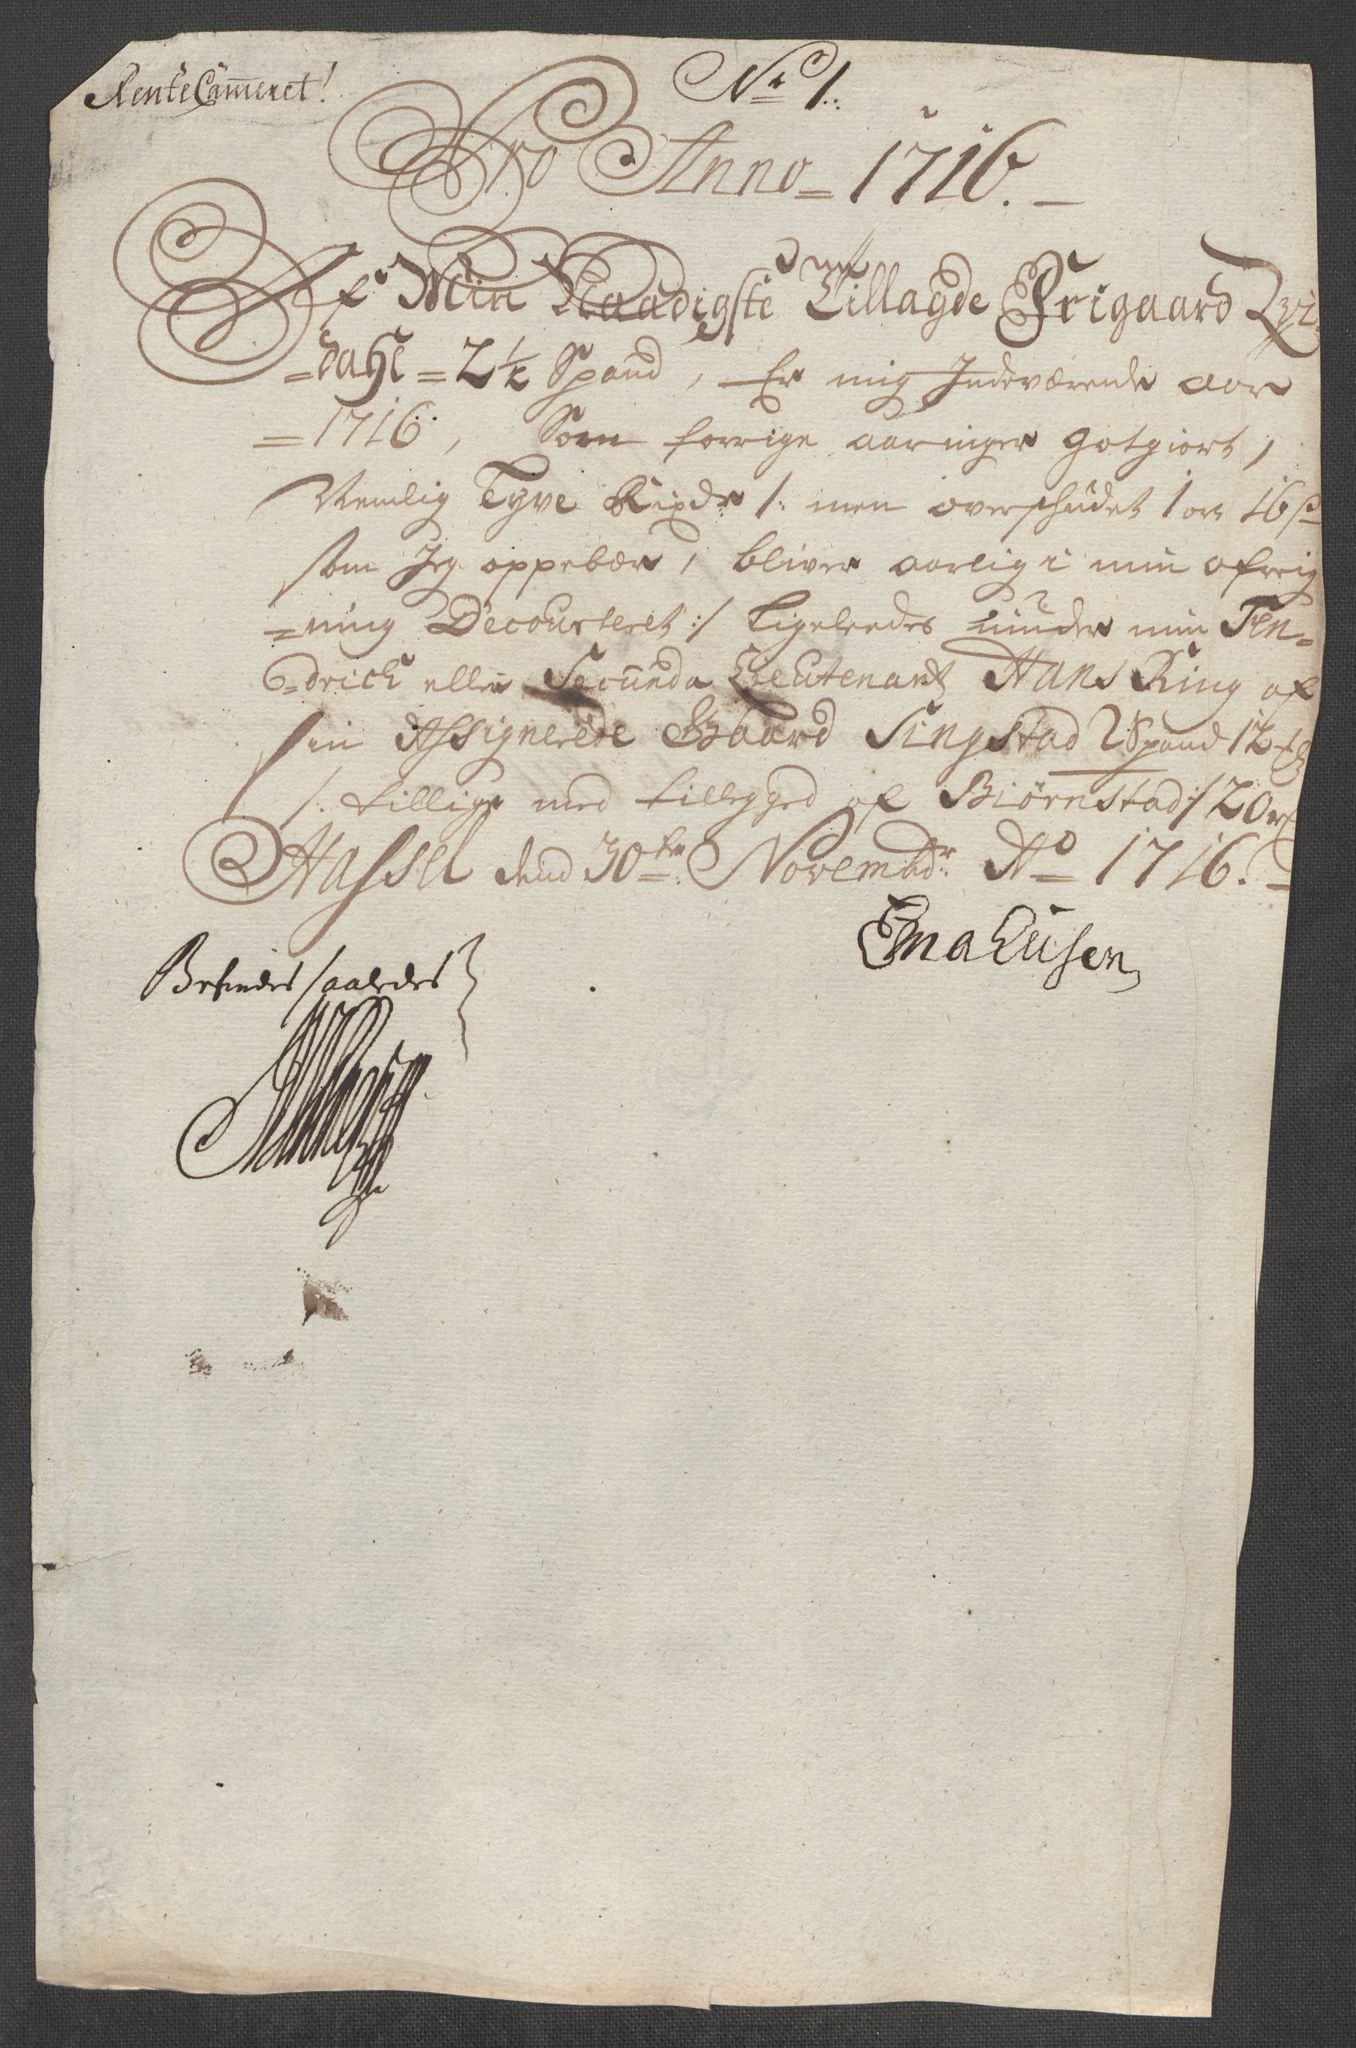 RenteCammeret!
No 1.
Pro Anno 1716.
Af Min Naadigste Tillagde Frigaard
=dahl = 2½ Spand, Er mig Indeværende aar
=1716, Som forrige aaringer gotgiort,
Nemlig Tyve Rixdr /: men overskudet 1 ort 16 s
som Jeg oppebær, bliver aarlig i min afreig
=ning Decourteret :/ Ligeledes under min Fen=
=drich eller Secunda Lieutenant Hans Ring af
sin Assignerede Gaard Singstad 2 Spand 12
/: tillige med tillegged af Biørnstad :/ 20
Hassel dend 30te Novembr Ao 1716.
Emahusen
Befindes saaledes